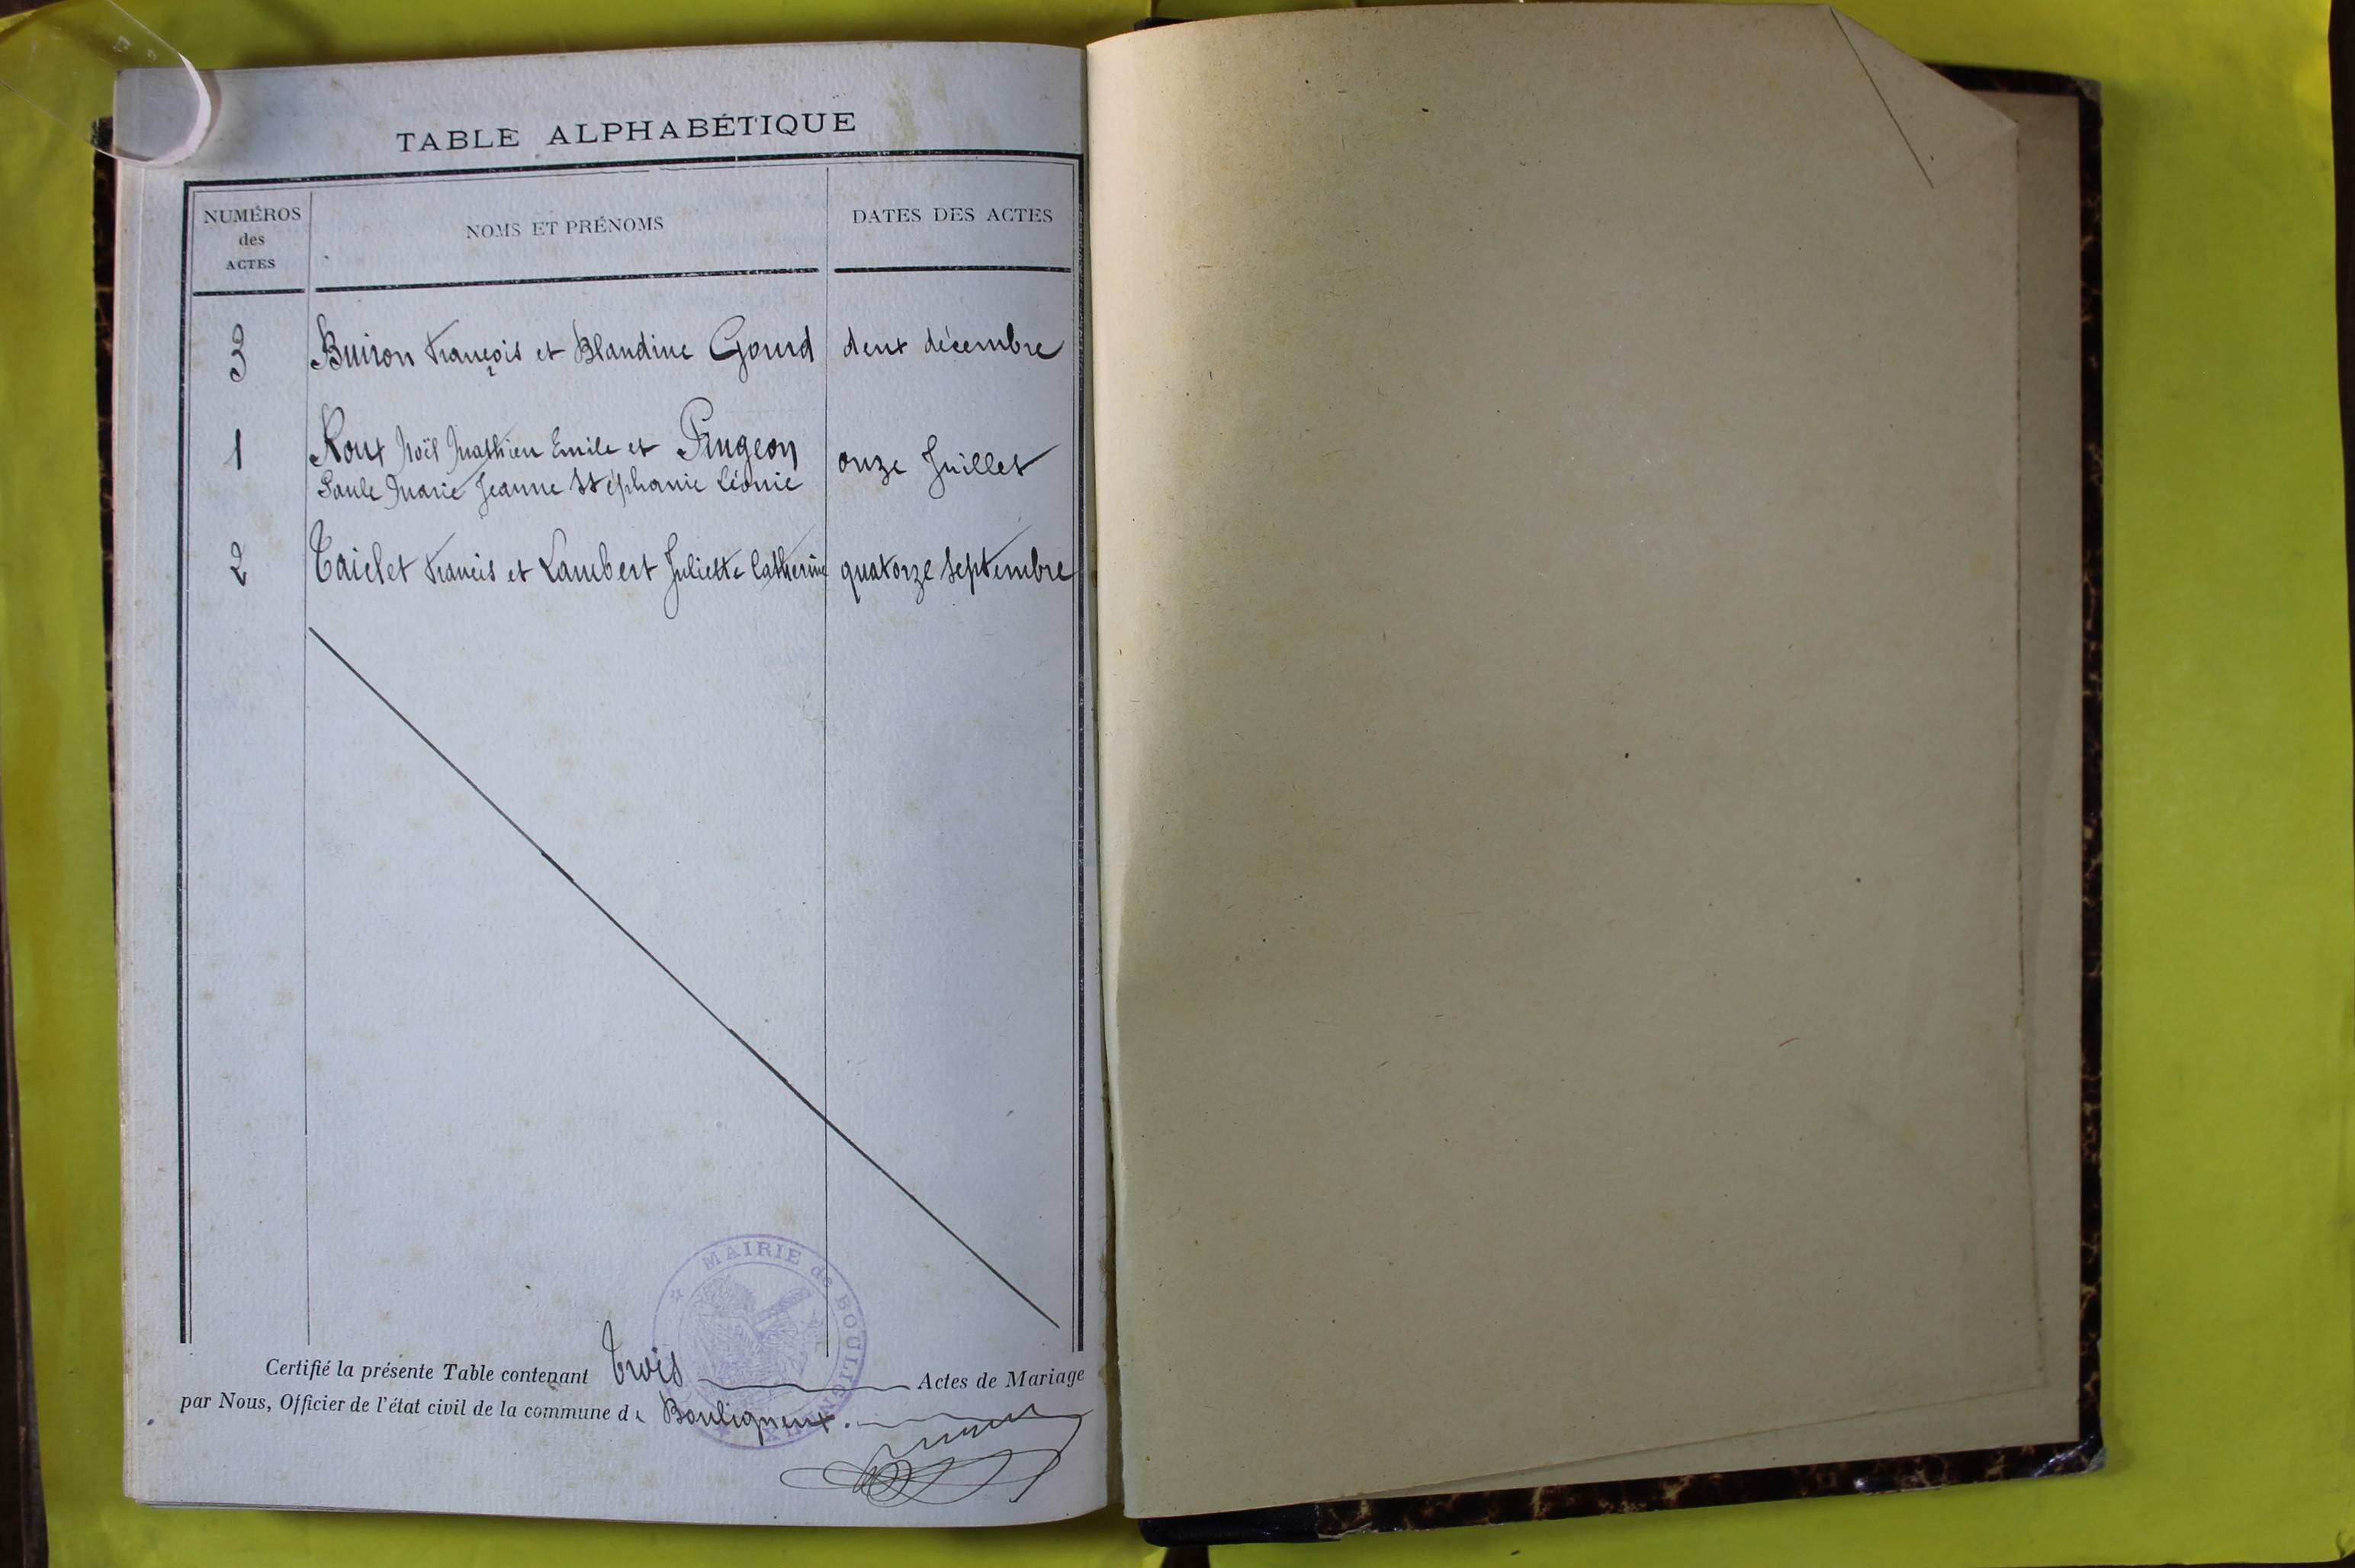 TABLE ALPHABÉTIQUE
NUMÉROS des ACTES
NOMS ET PRÉNOMS
DATES DES ACTES
3 Buiron François et Blandine Gourd deux décembre
1 Roux Noël Mathieu Emile et Pingeon onze Juillet
Paule Marie Jeanne Stéphanie Léonie
2 Taiclet Francis et Lambert Juliette Catherine quatorze septembre
MAIRIE de BOULIGNEUX
Certifié la présente Table contenant trois Actes de Mariage
par Nous, Officier de l'état civil de la commune de Bouligneux.